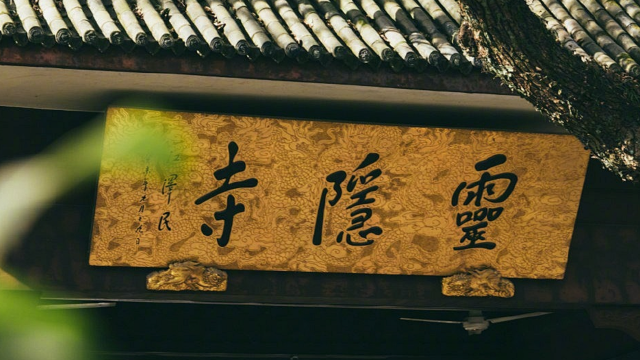 靈隱寺
澤民